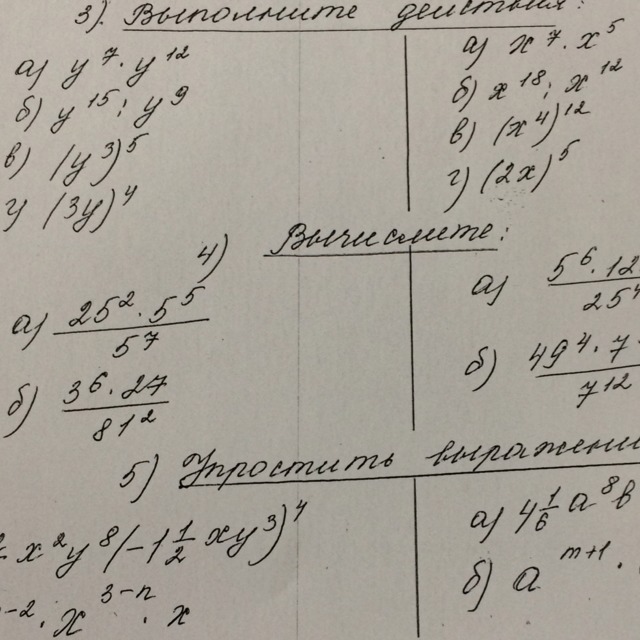 3). Выполните действия:
а) y⁷ · y¹²
б) y¹⁵ : y⁹
в) (y³)⁵
г) (3y)⁴
а) x⁷ · x⁵
б) x¹⁸ : x¹²
в) (x⁴)¹²
г) (2x)⁵
4) Вычислите:
а) 25² · 5⁵ / 5⁷
б) 3⁶ · 27 / 81²
а) 5⁶ · 12 / 25⁴
б) 49⁴ · 7 / 7¹²
5) Упростить выражени
x²y⁸(-1 1/2 xy³)⁴
-2 · x³⁻ⁿ · x
а) 4 1/6 a⁸b
б) a ᵐ⁺¹ ·